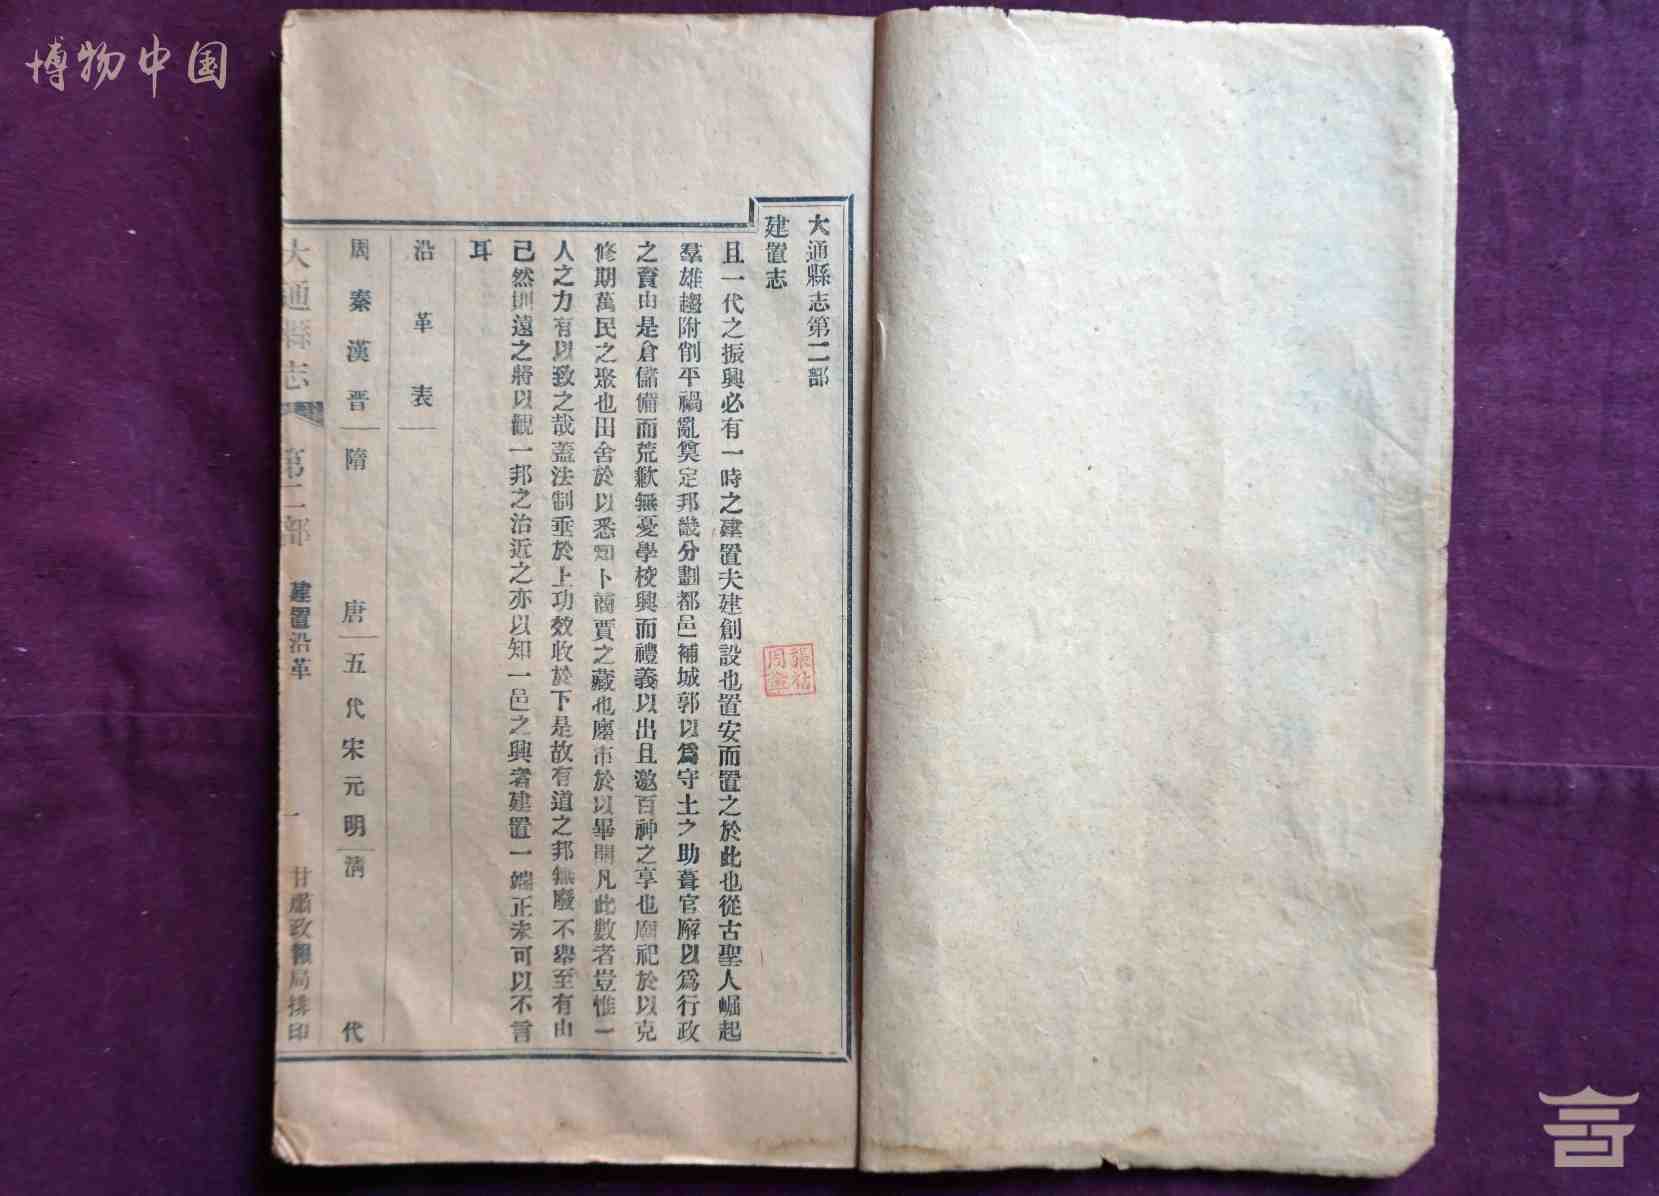 博物中国
大通縣志第二部
建置志
且一代之振興必有一時之建置夫建創設也置安而置之於此也從古聖人崛起
羣雄趨附削平禍亂奠定邦畿分劃都邑補城郭以爲守土之助葺官廨以爲行政
之資由是倉儲備而荒歉無憂學校興而禮義以出且邀百神之享也廟祀於以克
修期萬民之聚也田舍於以悉知卜商賈之藏也廛市於以畢開凡此數者豈惟一
人之力有以致之哉蓋法制垂於上功效收於下是故有道之邦無廢不舉至有由
已然則遠之將以觀一邦之治近之亦以知一邑之興者建置一端正未可以不言
耳
沿革表
周秦漢晉隋唐五代宋元明清代
大通縣志 第二部 建置沿革 一 甘肅政報局排印